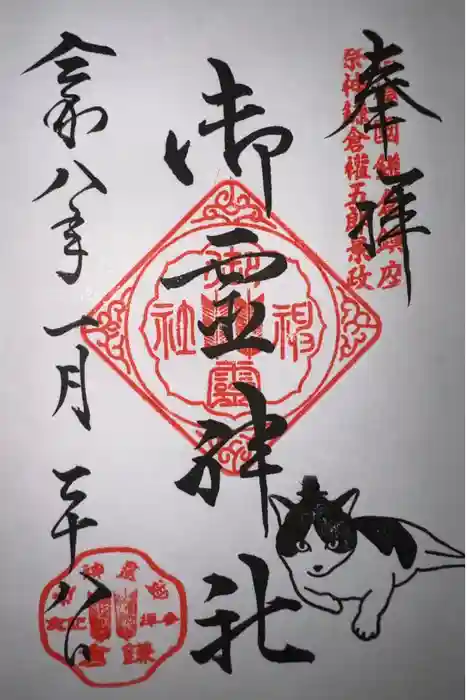 奉拝
祭神鎌倉権五郎景政
御霊神社
御霊神社
令和八年一月二十八日